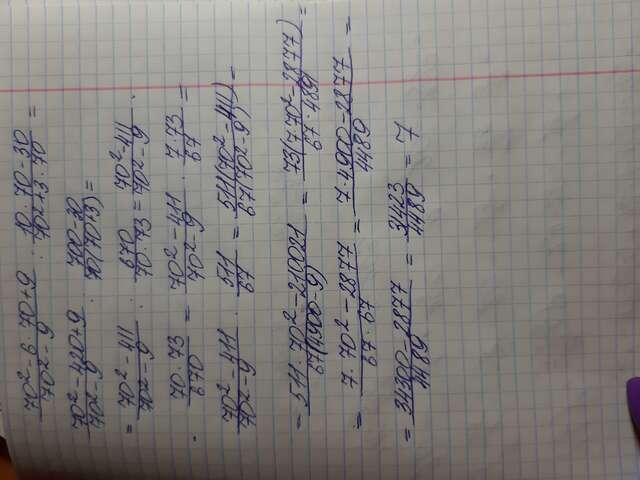 70² - 6 · 70 + 9 / 70² - 9 : 10 · 70 - 30 / 70² + 3 · 70 =
70² - 420 + 9 / 70² - 9 : 700 - 30 / 70(70+3) =
= 70² - 411 / 70² - 9 : 670 / 70 · 73 = 70² - 411 / 70² - 9 ·
· 70 · 73 / 670 = 70² - 411 / 70² - 9 · 7 · 73 / 67 =
70² - 411 / 70² - 9 · 511 / 67 = 511(70² - 411) / 67(70² - 9) =
= 511 · 70² - 210021 / 67(4900 - 9) = 73(7 · 70² - 2877) / 67 · 4891 =
= 7 · 70² - 2877 / 67 · 67 = 7 · 4900 - 2877 / 4489 =
= 34300 - 2877 / 4489 = 31423 / 4489 = 7